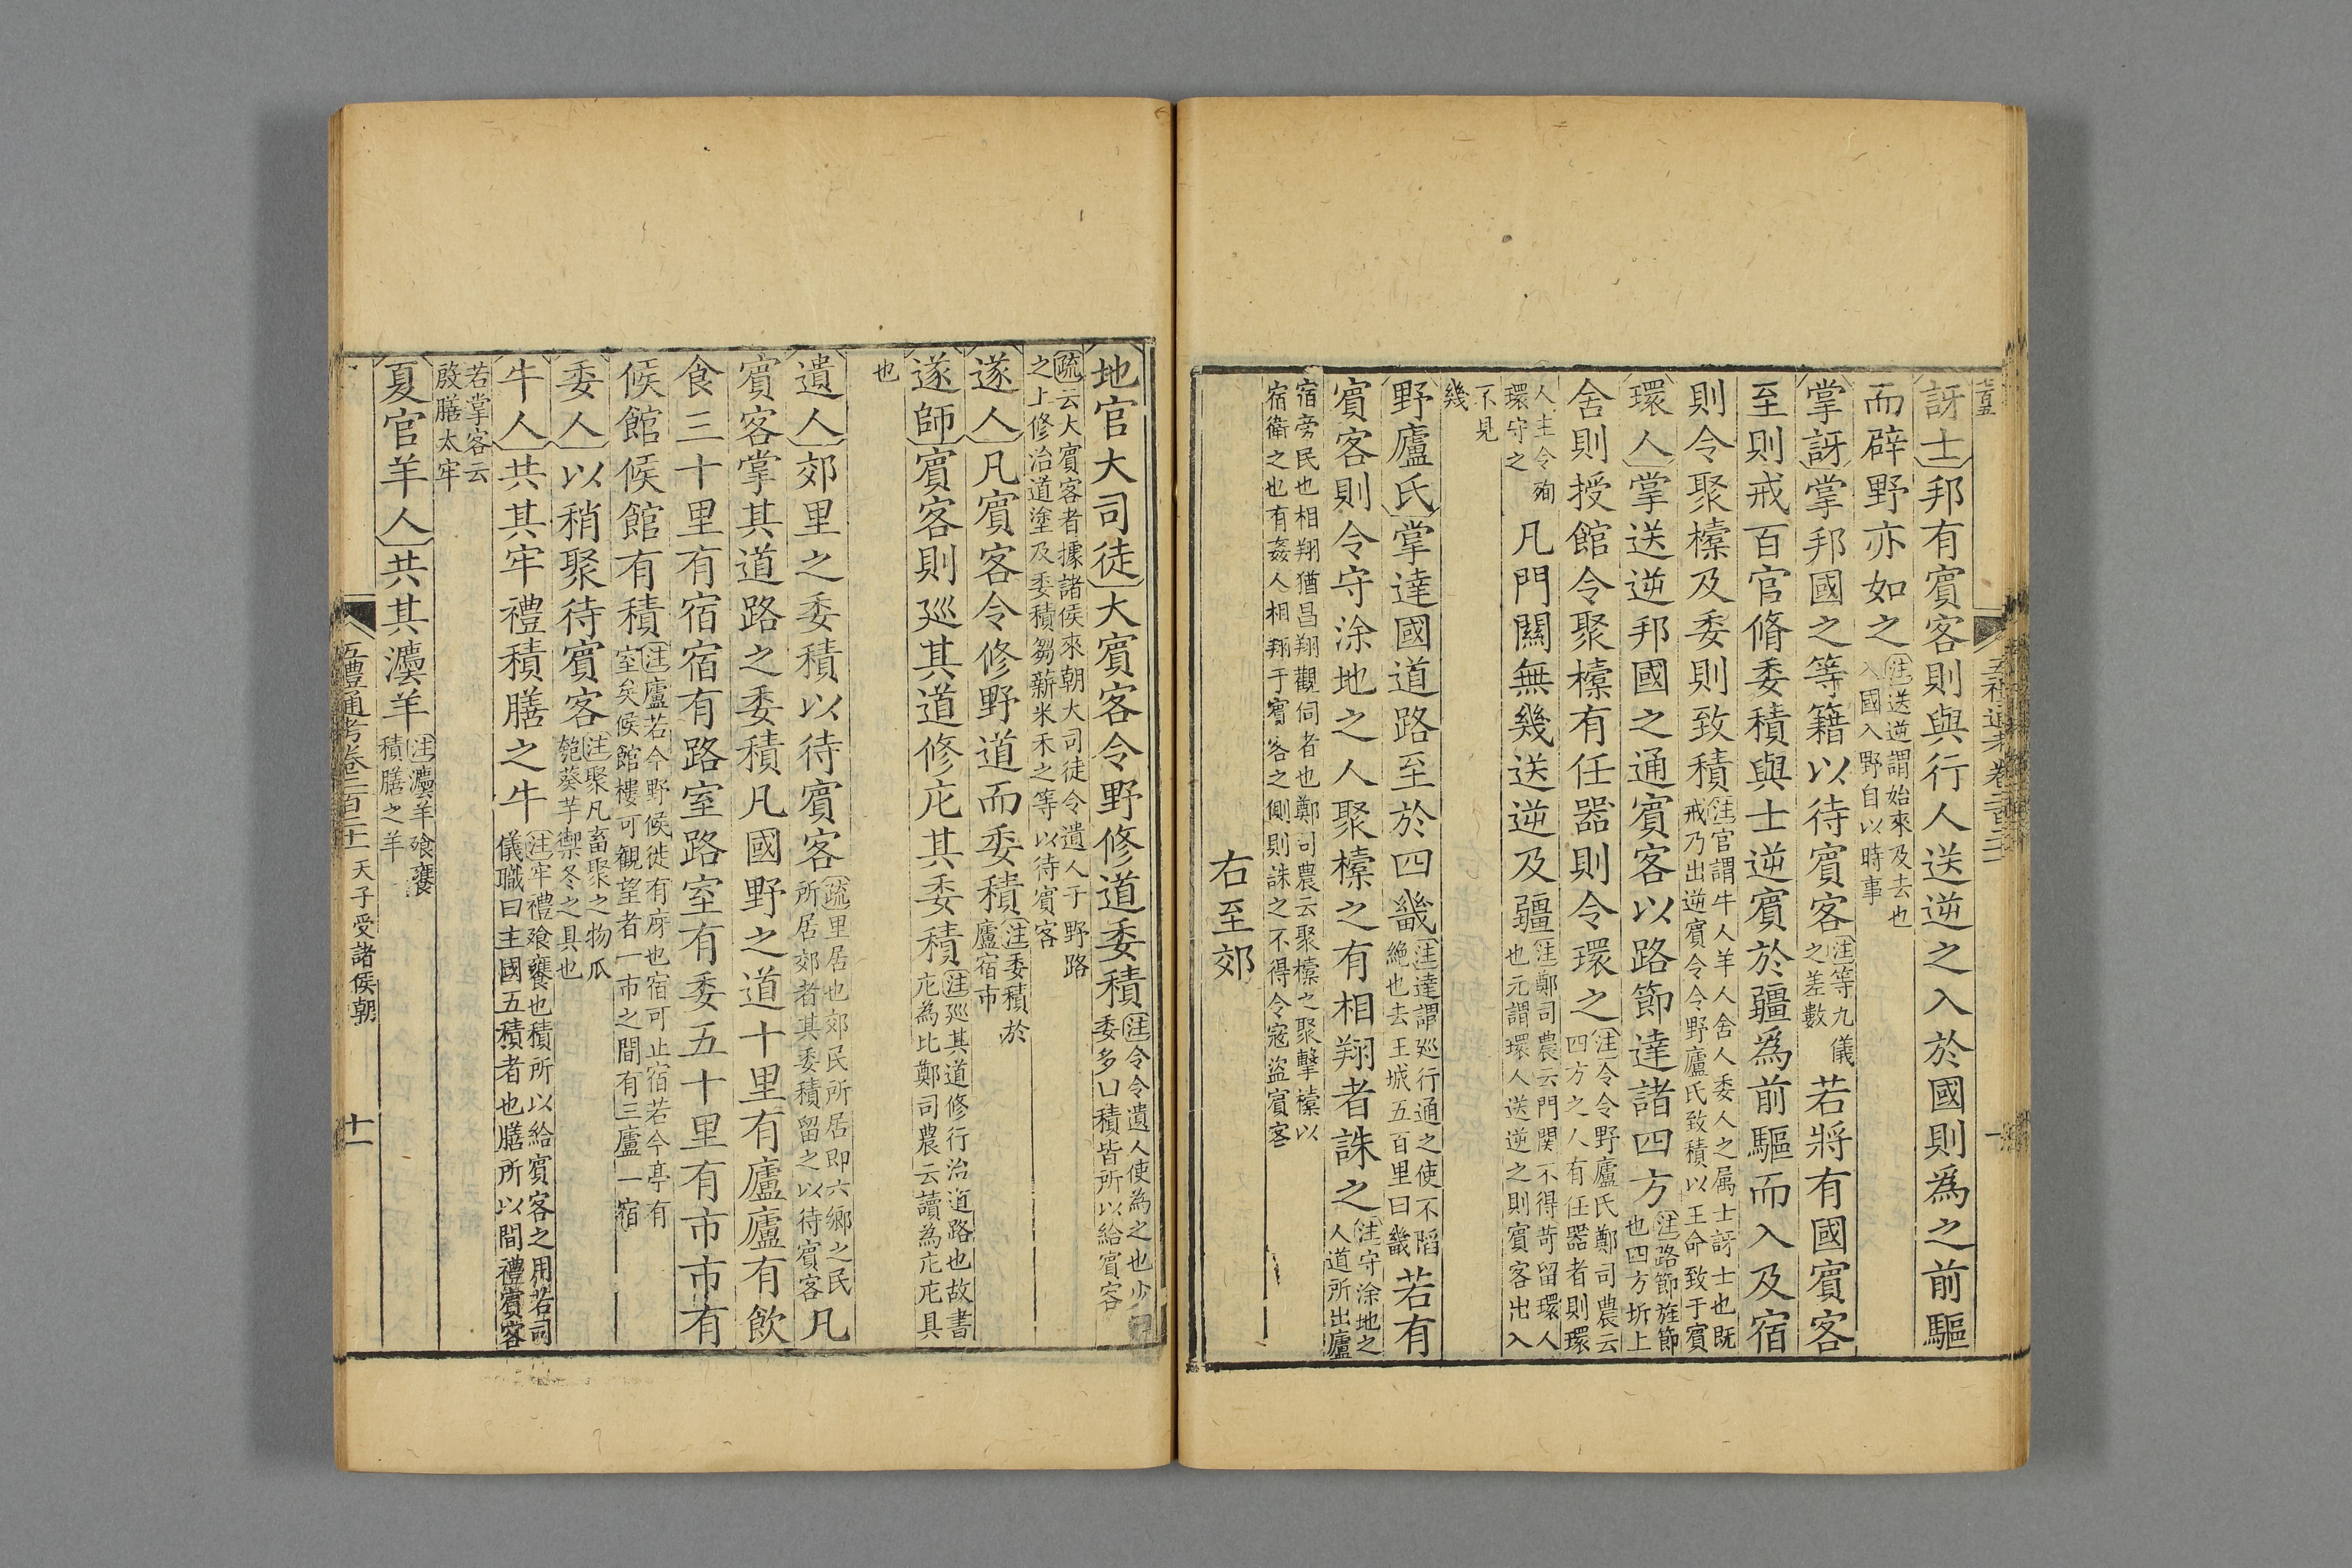 訝士邦有賓客則與行人送逆之入於國則爲之前驅
而辟野亦如之注送逆謂始來及去也入國入野自以時事
掌訝掌邦國之等籍以待賓客注等九儀之差數若將有國賓客
至則戒百官脩委積與士逆賓於疆爲前驅而入及宿
則令聚㯓及委則致積注官謂牛人羊人舍人委人之属士訝士也既戒乃出逆賓令令野廬氏致積以王命致于賓
環人掌送逆邦國之通賓客以路節達諸四方注路節旌節也四方圻上
舍則授館令聚㯓有任器則令環之注令令野廬氏鄭司農云四方之人有任器者則環
人主令殉環守之凡門關無幾送逆及疆注鄭司農云門関不得苛留環人也元謂環人送逆之則賓客出入
不見幾
野廬氏掌達國道路至於四畿注達謂廵行通之使不陷絶也去王城五百里曰畿若有
賓客則令守涂地之人聚㯓之有相翔者誅之注守涂地之人道所出廬
宿旁民也相翔猶昌翔觀伺者也鄭司農云聚㯓之聚擊㯓以宿衛之也有姦人相翔于賓客之側則誅之不得令寇盜賓客
右至郊
地官大司徒大賓客令野修道委積注令令遺人使為之也少曰委多曰積皆所以給賓客
疏云大賓客者據諸侯來朝大司徒令遺人于野路之上修治道塗及委積芻薪米禾之等以待賓客
遂人凡賓客令修野道而委積注委積於廬宿市
遂師賓客則廵其道修庀其委積注廵其道修行治道路也故書庀為比鄭司農云讀為庀庀具
也
遺人郊里之委積以待賓客疏里居也郊民所居即六鄉之民所居郊者其委積留之以待賓客凡
賓客掌其道路之委積凡國野之道十里有廬廬有飲
食三十里有宿宿有路室路室有委五十里有市市有
候館候館有積注廬若今野候徙有庌也宿可止宿若今亭有室矣候館樓可観望者一市之間有三廬一宿
委人以稍聚待賓客注聚凡畜聚之物瓜瓠葵芋禦冬之具也
牛人共其牢禮積膳之牛注牢禮飧饔也積所以給賓客之用若司儀職曰主國五積者也膳所以間禮賓客
若掌客云殷膳太牢
夏官羊人共其灋羊注灋羊飧饔積膳之羊
五禮通考卷二百二十 天子受諸侯朝 十一